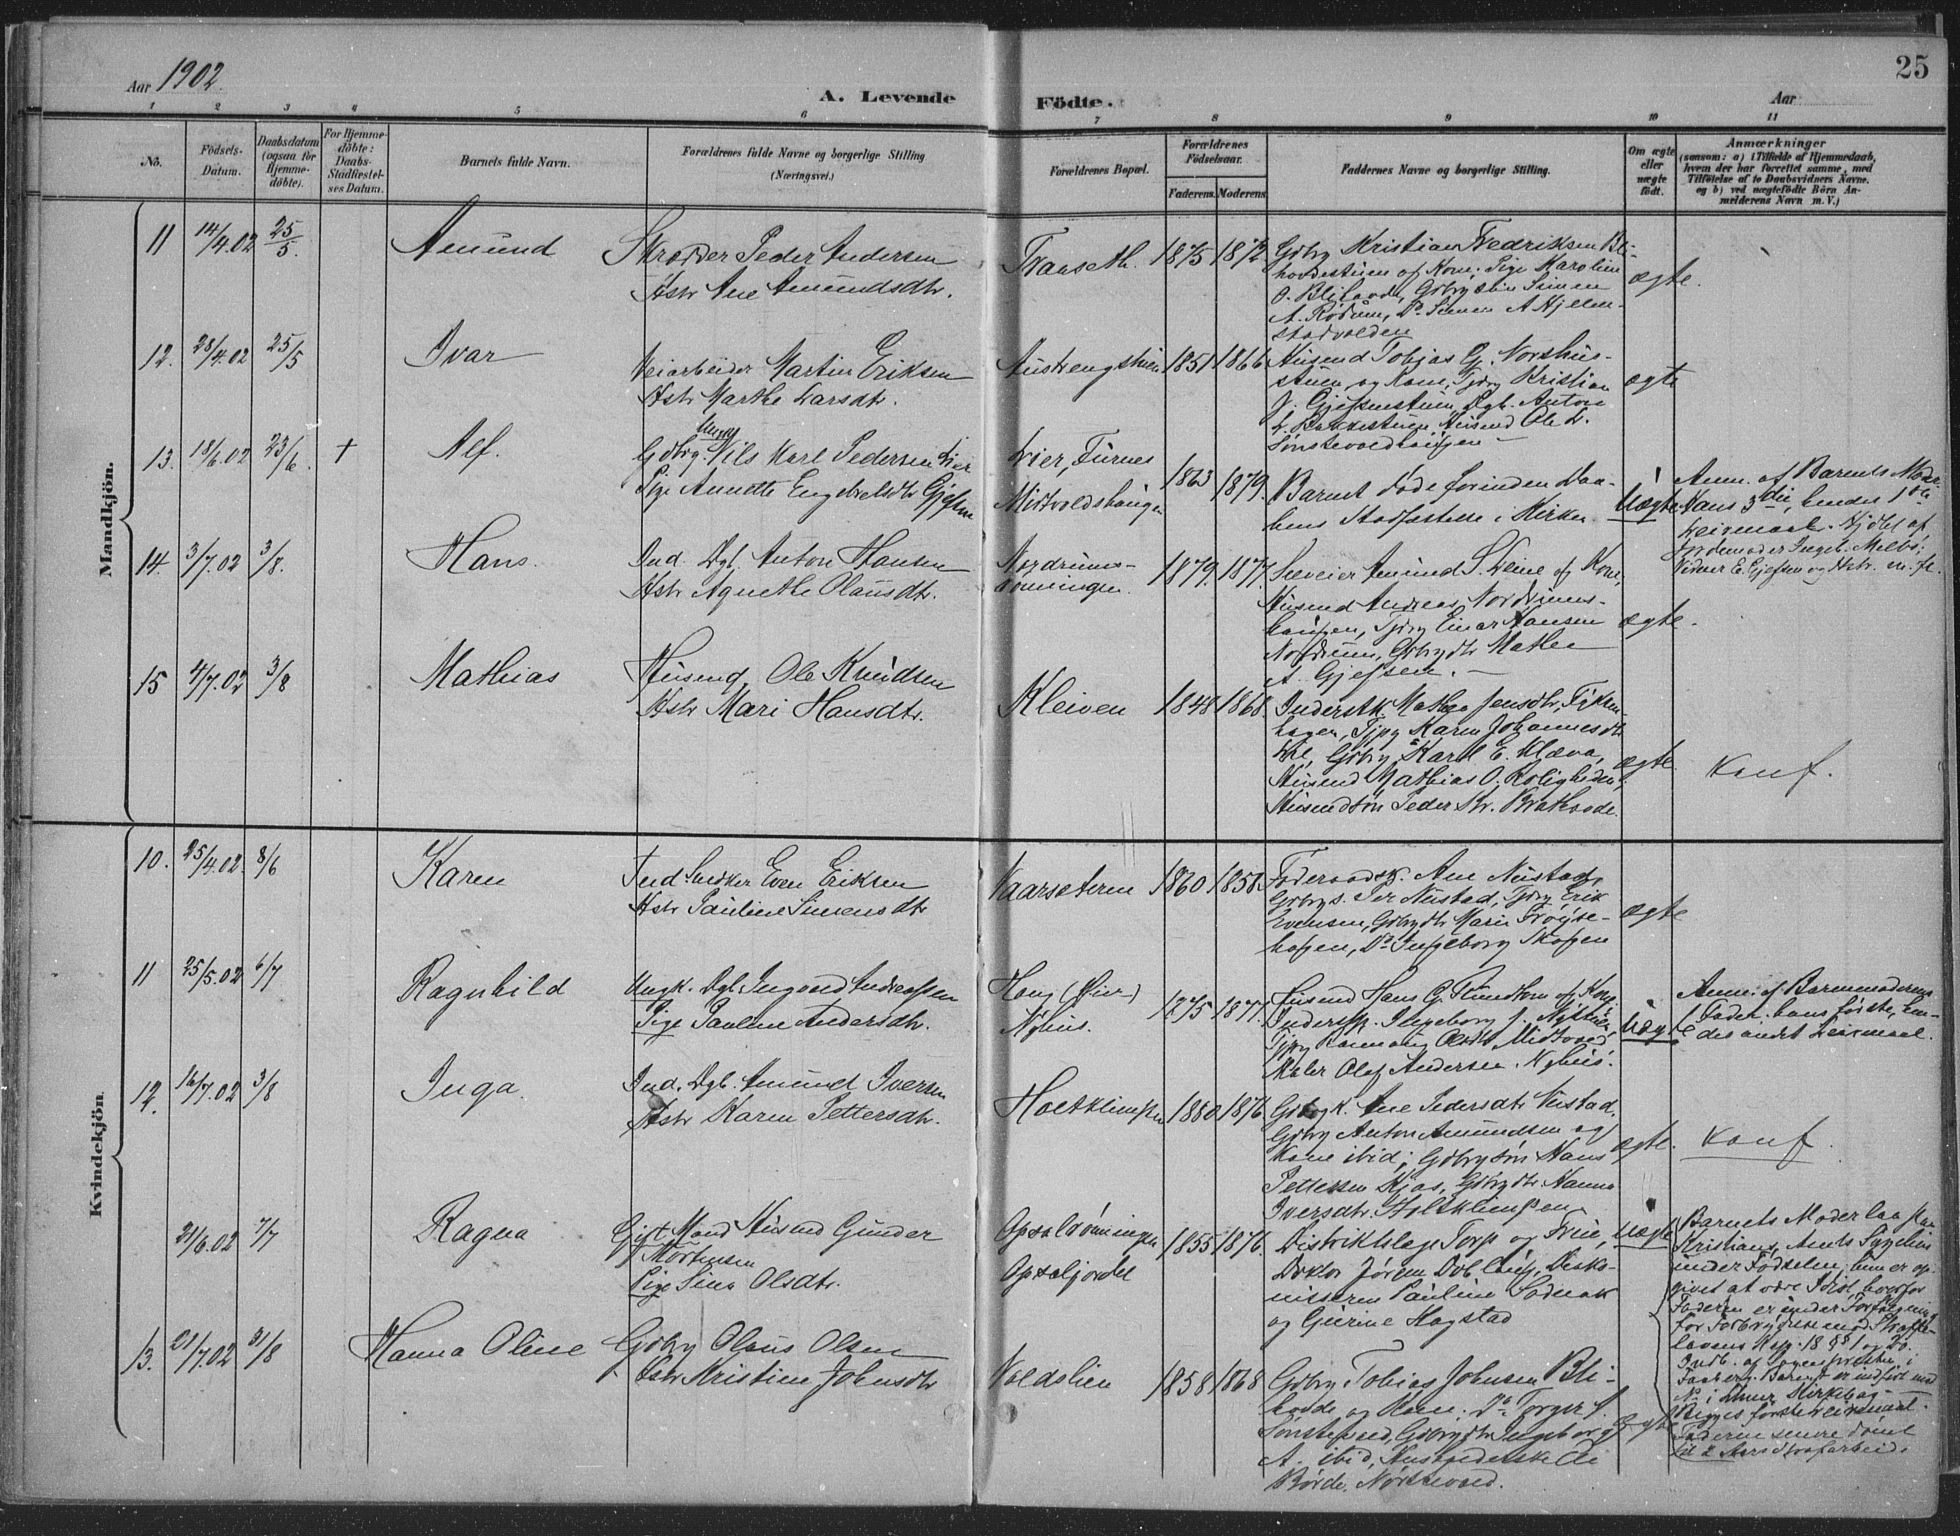 Aar 1902.
A. Levende Födte.
Aar
25
1 2 3 4 5 6 7 8 9 10 11
No.
Födsels-Datum.
Daabsdatum (ogsaa för Hjemme-döbte).
For Hjemme-döbte: Daabs-Stadfæstel-ses Datum.
Barnets fulde Navn.
Forældrenes fulde Navne og borgerlige Stilling
(Næringsvei.)
Forældrenes Bopæl.
Forældrenes Födselsaar.
Faderens. Moderens.
Faddernes Navne og borgerlige Stilling.
Om ægte eller uægte födt.
Anmærkninger
(saasom: a) i Tilfælde af Hjemmedaab,
hvem der har forrettet samme, med
Tilföielse af to Daabsvidners Navne,
og b) ved uægtefödte Börn An-
melderens Navn m. V.)
Mandkjön.
11 14/4.02 25/5. Amund
Skrædder Peder Andersen
Hstr Ane Amundsdtr.
Traaseth. 1875 1872
Gdbr Kristian Fredriksen Bli-
hovdestuen og Kone, Pige Karoline
O. Blihovde, Gdbrysøn Simen
A. Rødum, Do Simen A Hjelm-
stadvolden
ægte.
12. 28/4.02 25/5 Ivar
Veiarbeider Martin Eriksen
Hstr Marthe Larsdtr.
Austengstuen 1851 1866
Husmd Tobjas G. Norshus-
stuen og Kone, Tjdrg Kristian
J. Gjefsenstuen, Dgl. Anton
L. Bakkestuen, Husmd Ole L.
Sønstevoldhaugen
ægte
13. 18/6.02 23/6. + Alf.
Gdbrg. Ungk Nils Karl Pedersen Lier
Pige Annette Engebretsdtr Gjefsen
Lier, Furnes
Midtvoldshaugen
1863 1879.
Barnet døde forinden Daa-
bens Stadfæstelse i Kirken
Uægte
Anm. af Barnets Moder.
Hans 3die, hendes 1ste
Leiermaal. Hjdbt af
Jordemoder Ingeb. Melbö;
Vidner E. Gjefsen og Hstr. m. fl.
14. 3/7.02 3/8. Hans.
Ind. Dgl. Anton Hansen
Hstr Agnethe Olausdtr.
Nordrums-
dømningen.
1879. 1877.
Selveier Amund S. Leine og Kone,
Husmd Andreas Nordrums-
haugen, Tjdrg Einar Hansen
Nordrum, Gdbrdtr Mathea
A. Gjefsen.
ægte.
15 4/7.02 3/8 Mathias
Husmd Ole Knudsen
Hstr Mari Hansdtr.
Kleiven 1848 1868.
Inderstk Mathea Jensdtr, Fiksen-
hagen, Tjpg Karen Johannesdtr
Gdbrg Karl E. Klæva,
Husmd Mathias O. Roligheden,
Husmdsøn Peder Kr. Brathovde.
ægte. Konf.
Kvindekjön
10. 25/4.02. 8/6 Karen
Ind Snekker Even Eriksen
Hstr Pauline Simensdtr
Vaarseteren 1860 1858.
Føderaadsk. Ane Nustad,
Gdbrgs. Per Nustad, Tjdrg Erik
Evensen, Gdbrgdtr Marie Frøyse-
hofgen, Do Ingeborg Skofgen
ægte
11 25/5.02 6/7 Ragnhild
Ungk. Dgl. Ingvard Andreassen
Pige Pauline Andersdtr.
Haug (Øier)
Nyhus.
1875 1877.
Husmd Hans G. Flundhom og Kone,
Inderstp. Ingeborg J. Nyhus,
Tjpg Rannang Olsdtr Midtvold
Maler Olaf Andersen. Nyhus.
Uægte
Anm. af Barnemoderens
Fader. hans første, hen-
des andet Leiermaal.
12. 16/7.02 3/8 Inga.
Ind. Dgl. Amund Iversen
Hstr Karen Pettersdtr.
Holtklimpen 1880 1876.
Gdbrgk. Ane Pedersdtr Nustad.
Gdbrg Anton Amundsen og
Kone ibid; Gdbrgsøn Hans
Pettersen Kjos, Gdbrgdtr Hanna
Iversdtr Holtklimpen
ægte. Konf.
21/6.02 7/7 Ragna
Gift Mand Husmd Gunder
Mortensen
Pige Sina Olsdtr.
Opsaldømningen
Opsaljordet
1855 1876.
Distriktslæge Torp og Frue,
Doktor Jørgen Dobloug, Diako-
nisserne Pauline
og Gurine Hagstad
Uægte
Barnets Moder laa paa
Kristians Amts Sygehus
under Fødselen, hun er op-
givet at være Idiot, hvorfor
Faderen er under Forfølgning
for Forbrydelse mod Straffe-
lovens Kap. 18 §§ 1 og 20.
Indb. af Sognepresten i
Faaberg. Barnet er indført med
No i Lhmr Kirkebog —
Begges første Leiermaal.
Faderen senere dømt
til 2 Aars Strafarbeide
13. 21/7.02 31/8 Hanna Oline
Gdbrg Olaus Olsen
Hstr Kristine Johnsdtr
Voldslien 1858 1868
Gdbrg Tobias Johnsen Bli-
hovde og Kone, Do Torger S.
Sønstevold, Gdbrgdtr Ingeborg
A. ibid,
Nørstevold.
ægte